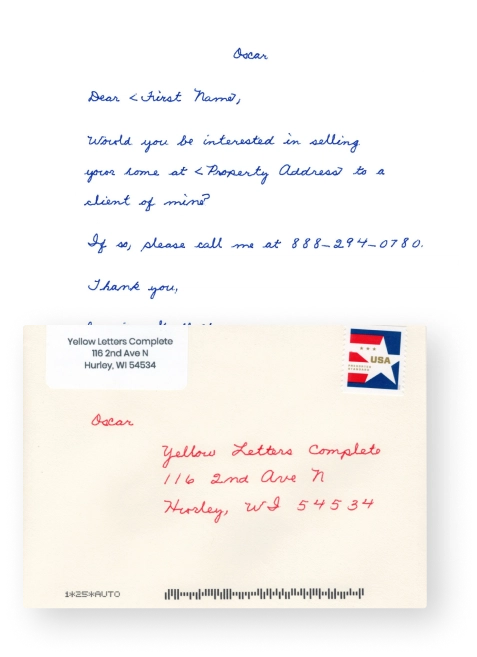 Oscar
Dear <First Name>,
Would you be interested in selling
your home at <Property Address> to a
client of mine?
If so, please call me at 888-294-0780.
Thank you,
Yellow Letters Complete
116 2nd Ave N
Hurley, WI 54534
USA
Oscar
Yellow Letters Complete
116 2nd Ave N
Hurley, WI 54534
1*25*AUTO